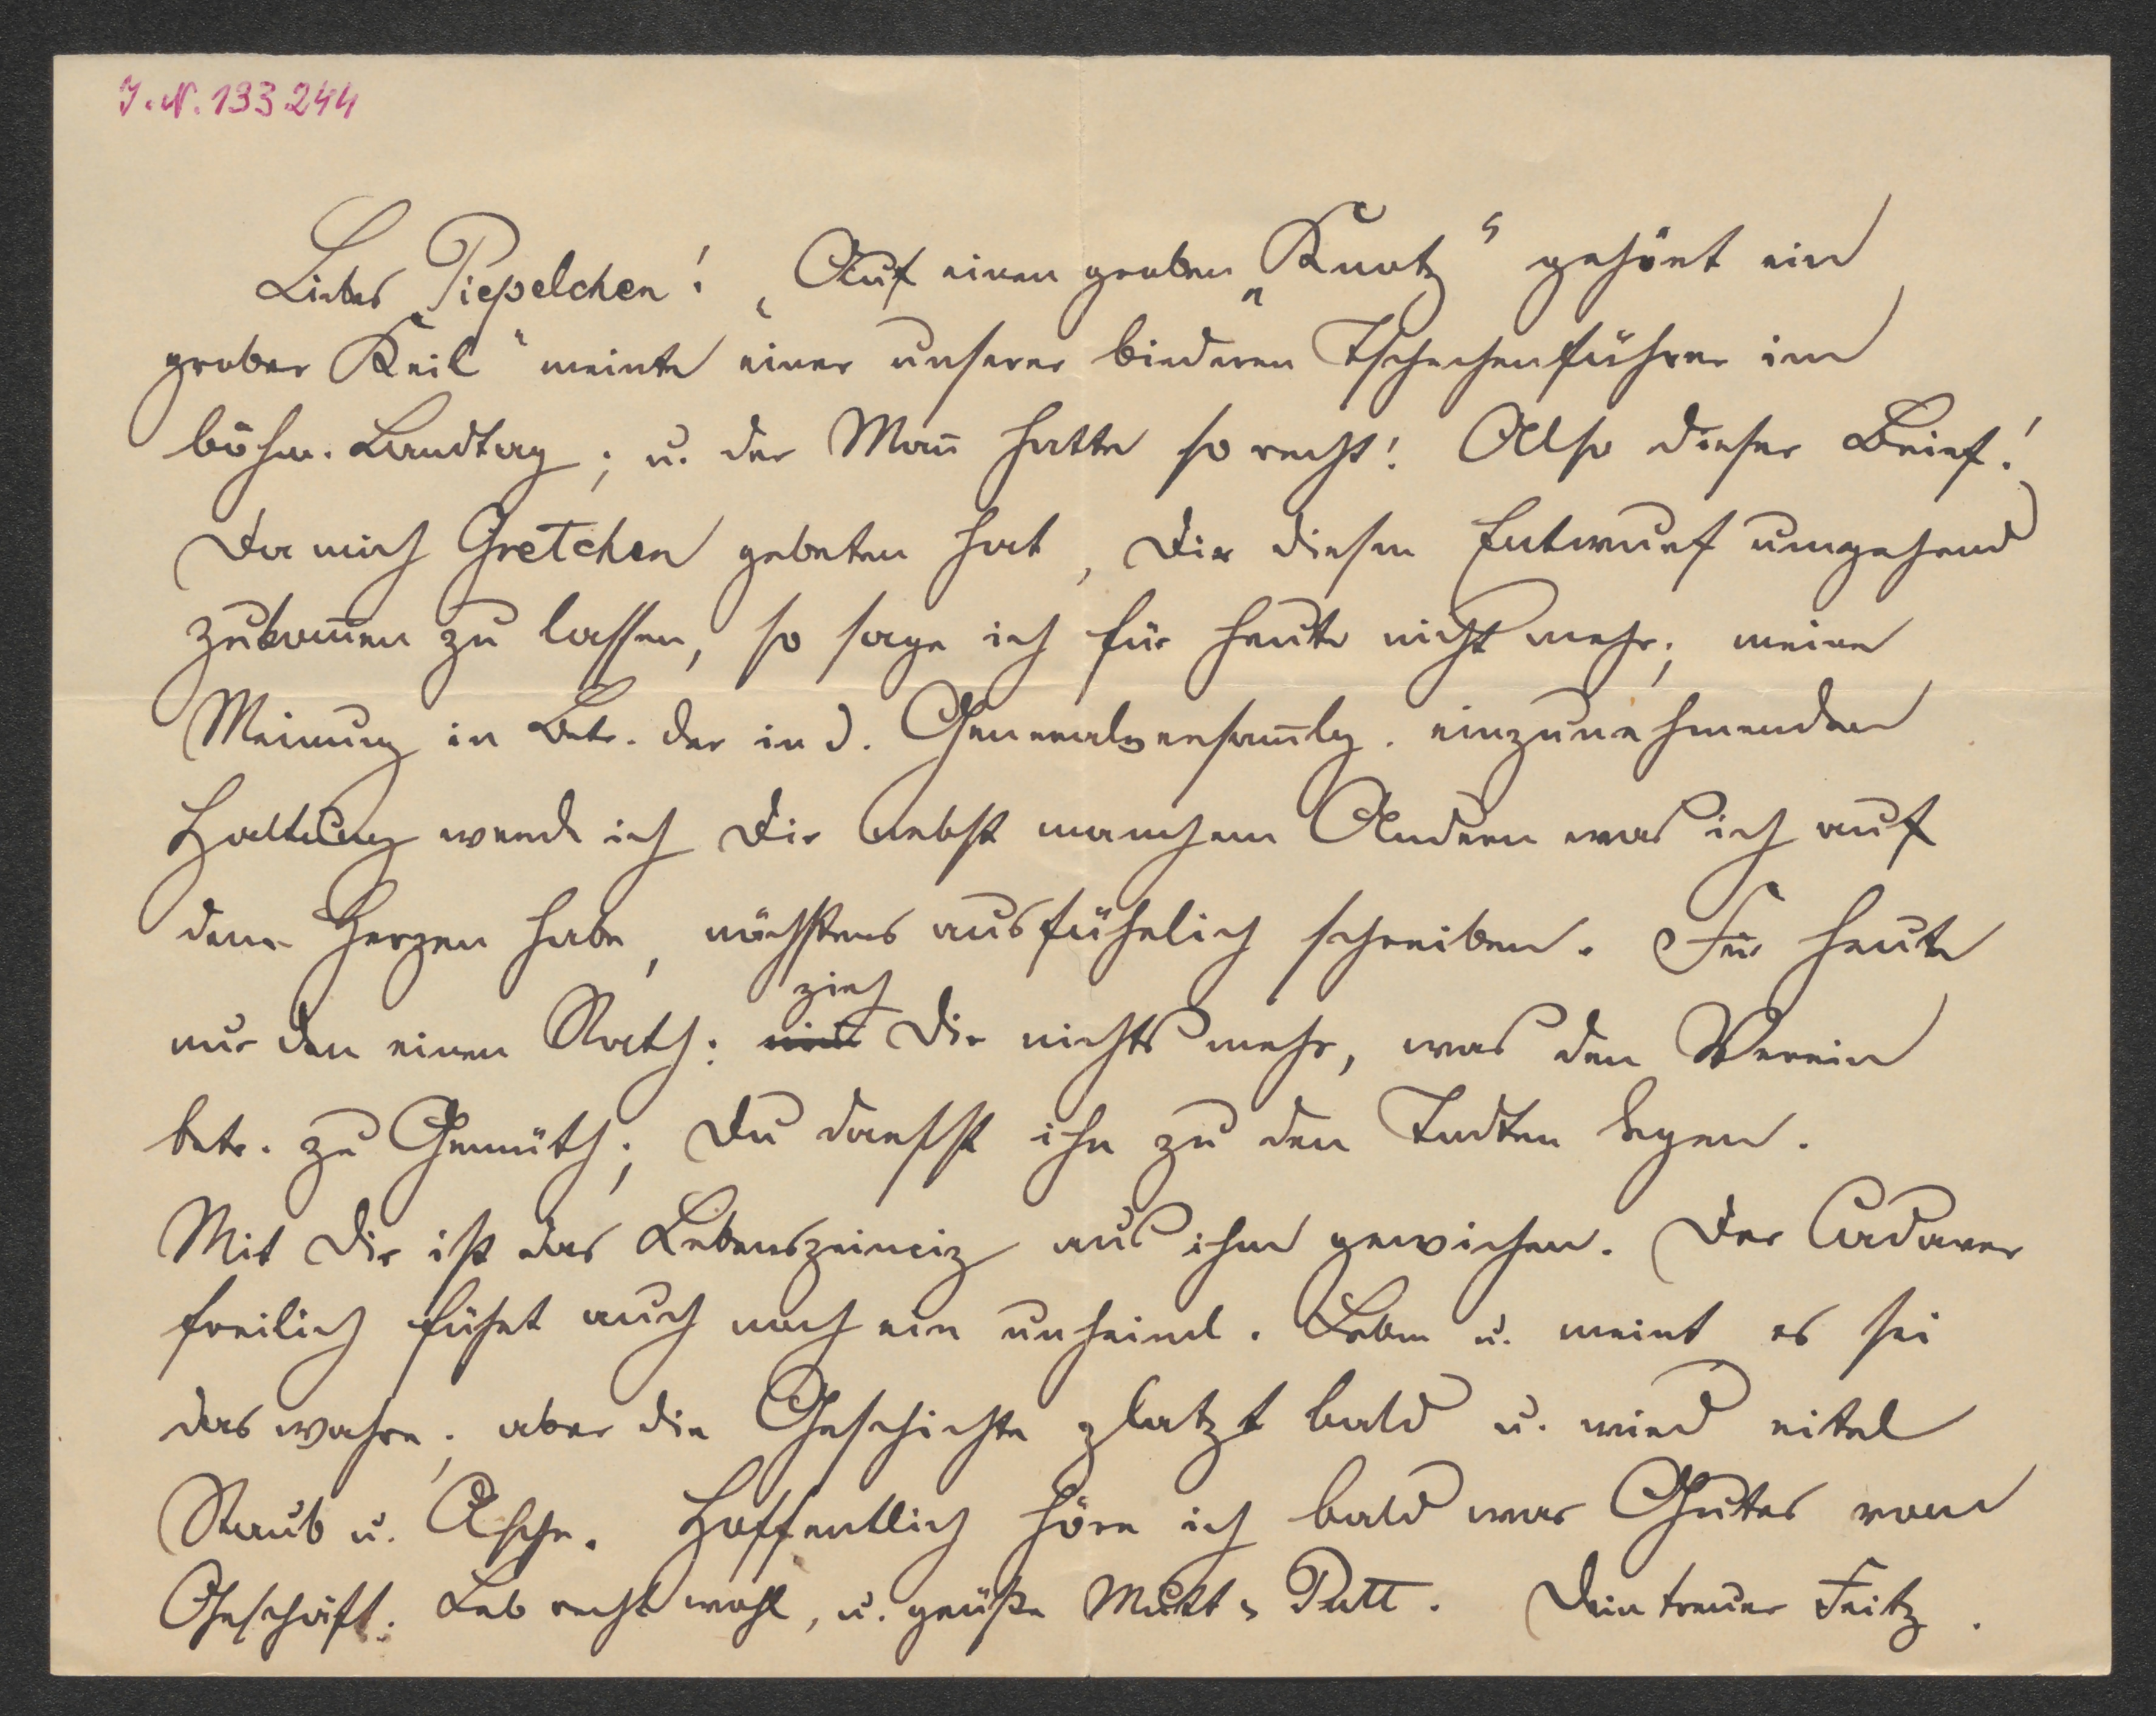 J. N. 133244
Liebes Piepelchen! „Auf einen groben „Knotz“ gehört ein
grober Keil“ meinte einer unserer biederen Tschechenführer im
böhm. Landtag; u. der Mañ hatte so recht! Also dieser Brief!
Da mich Gretchen gebeten hat, Dir diesen Entwurf umgehend
zukom̄en zu lassen, so sage ich für heute nicht mehr; meine
Meinung in Betr. der in d. Generalversam̄lg. einzunehmenden
Haltung werde ich Dir nebst manchem Andern was ich auf
dem Herzen habe, nächstens ausführlich schreiben. Für heute
zieh
nur den einen Rath: Dir nichts mehr, was den Verein
betr. zu Gemüth; Du darfst ihn zu den Todten legen.
Mit Dir ist das Lebensprincip aus ihm gewichen. Der Cadaver
freilich führt auch noch ein unheiml. Leben u. meint es sei
das wahre; aber die Geschichte platzt bald u. wird eitel
Staub u. Asche. Hoffentlich höre ich bald was Gutes vom
Geschäft. Leb recht wohl, u. grüße Mutt u Putt. Dein treuer Fritz.